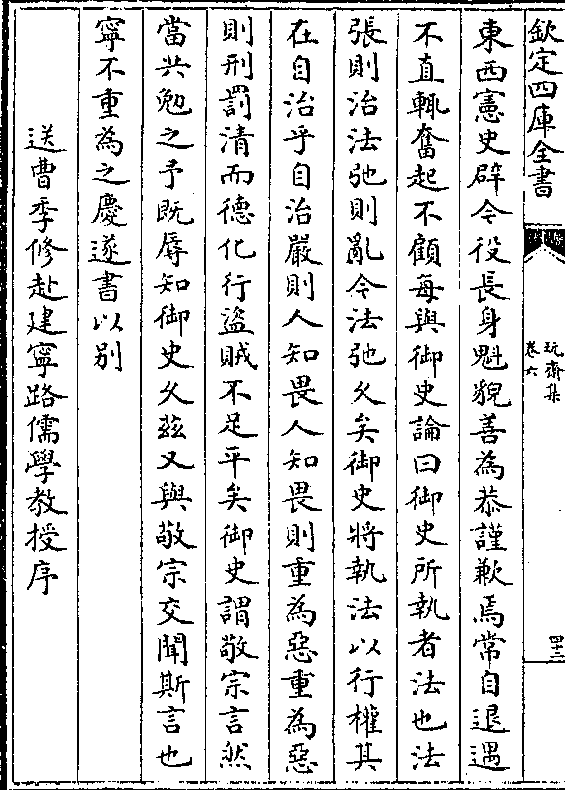 欽定四庫全書
玩齋集
卷六
四十三
東西憲史辟令役長身魁貌善為恭謹歉焉常自退遇
不直輒奮起不顧每與御史論曰御史所執者法也法
張則治法弛則亂今法弛久矣御史將執法以行權其
在自治乎自治嚴則人知畏人知畏則重為惡重為惡
則刑罰清而德化行盜賊不足平矣御史謂敬宗言然
當共勉之予既辱知御史久茲又與敬宗交聞斯言也
寧不重為之慶遂書以别
送曹季修赴建寧路儒學教授序